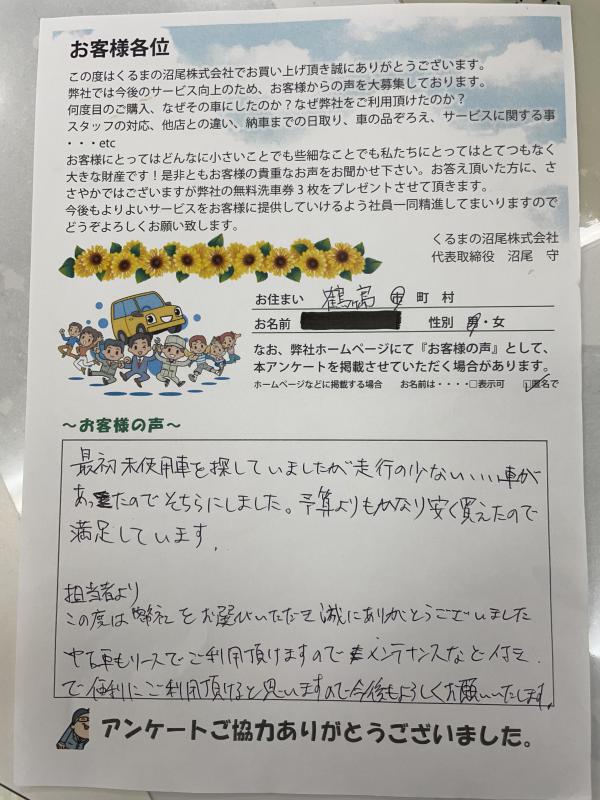 お客様各位
この度はくるまの沼尾株式会社でお買い上げ頂き誠にありがとうございます。
弊社では今後のサービス向上のため、お客様からの声を大募集しております。
何度目のご購入、なぜその車にしたのか？なぜ弊社をご利用頂けたのか？
スタッフの対応、他店との違い、納車までの日取り、車の品ぞろえ、サービスに関する事
・・・etc
お客様にとってはどんなに小さいことでも些細なことでも私たちにとってはとてつもなく
大きな財産です！是非ともお客様の貴重なお声をお聞かせ下さい。お答え頂いた方に、さ
さやかではございますが弊社の無料洗車券３枚をプレゼントさせて頂きます。
今後もよりよいサービスをお客様に提供していけるよう社員一同精進してまいりますので
どうぞよろしくお願い致します。
くるまの沼尾株式会社
代表取締役　沼尾　守
お住まい　鶴高 市 町 村
お名前　性別　男・女
なお、弊社ホームページにて『お客様の声』として、
本アンケートを掲載させていただく場合があります。
ホームページなどに掲載する場合　お名前は・・・・□表示可　□匿名で
～お客様の声～
最初未使用車を探していましたが走行の少ないいい車が
あったのでそちらにしました。予算よりもかなり安く買えたので
満足しています。
担当者より
この度は弊社をお選びいただき誠にありがとうございました
中古車もリースでご利用頂けますのでメンテナンスなど付き
で便利にご利用頂けると思いますので今後もよろしくお願いいたします。
アンケートご協力ありがとうございました。